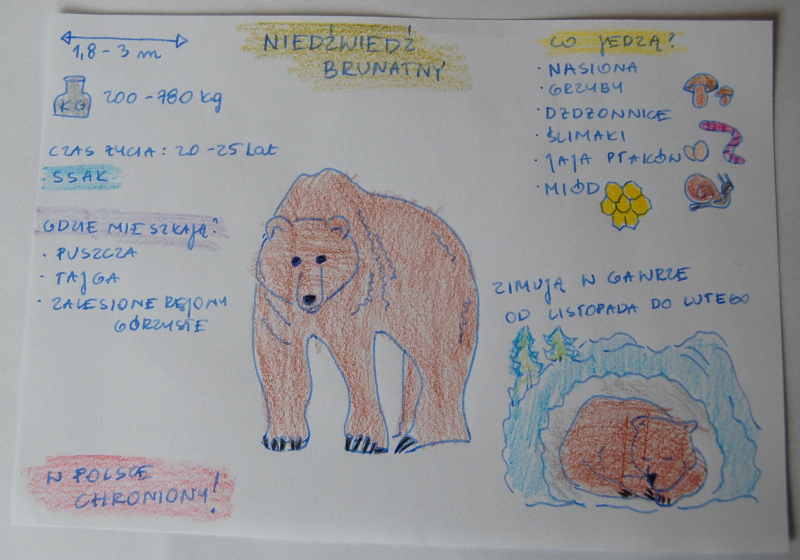 1,8 - 3 m
NIEDŹWIEDŹ
BRUNATNY
KG
200 - 780 kg
CZAS ŻYCIA: 20 - 25 lat
· SSAK
GDZIE MIESZKAJĄ?
· PUSZCZA
· TAJGA
· ZALESIONE REJONY
GÓRZYSTE
W POLSCE
CHRONIONY!
CO JEDZĄ?
· NASIONA
· GRZYBY
· DŻDŻOWNICE
· ŚLIMAKI
· JAJA PTAKÓW
· MIÓD
ZIMUJĄ W GAWRZE
OD LISTOPADA DO LUTEGO